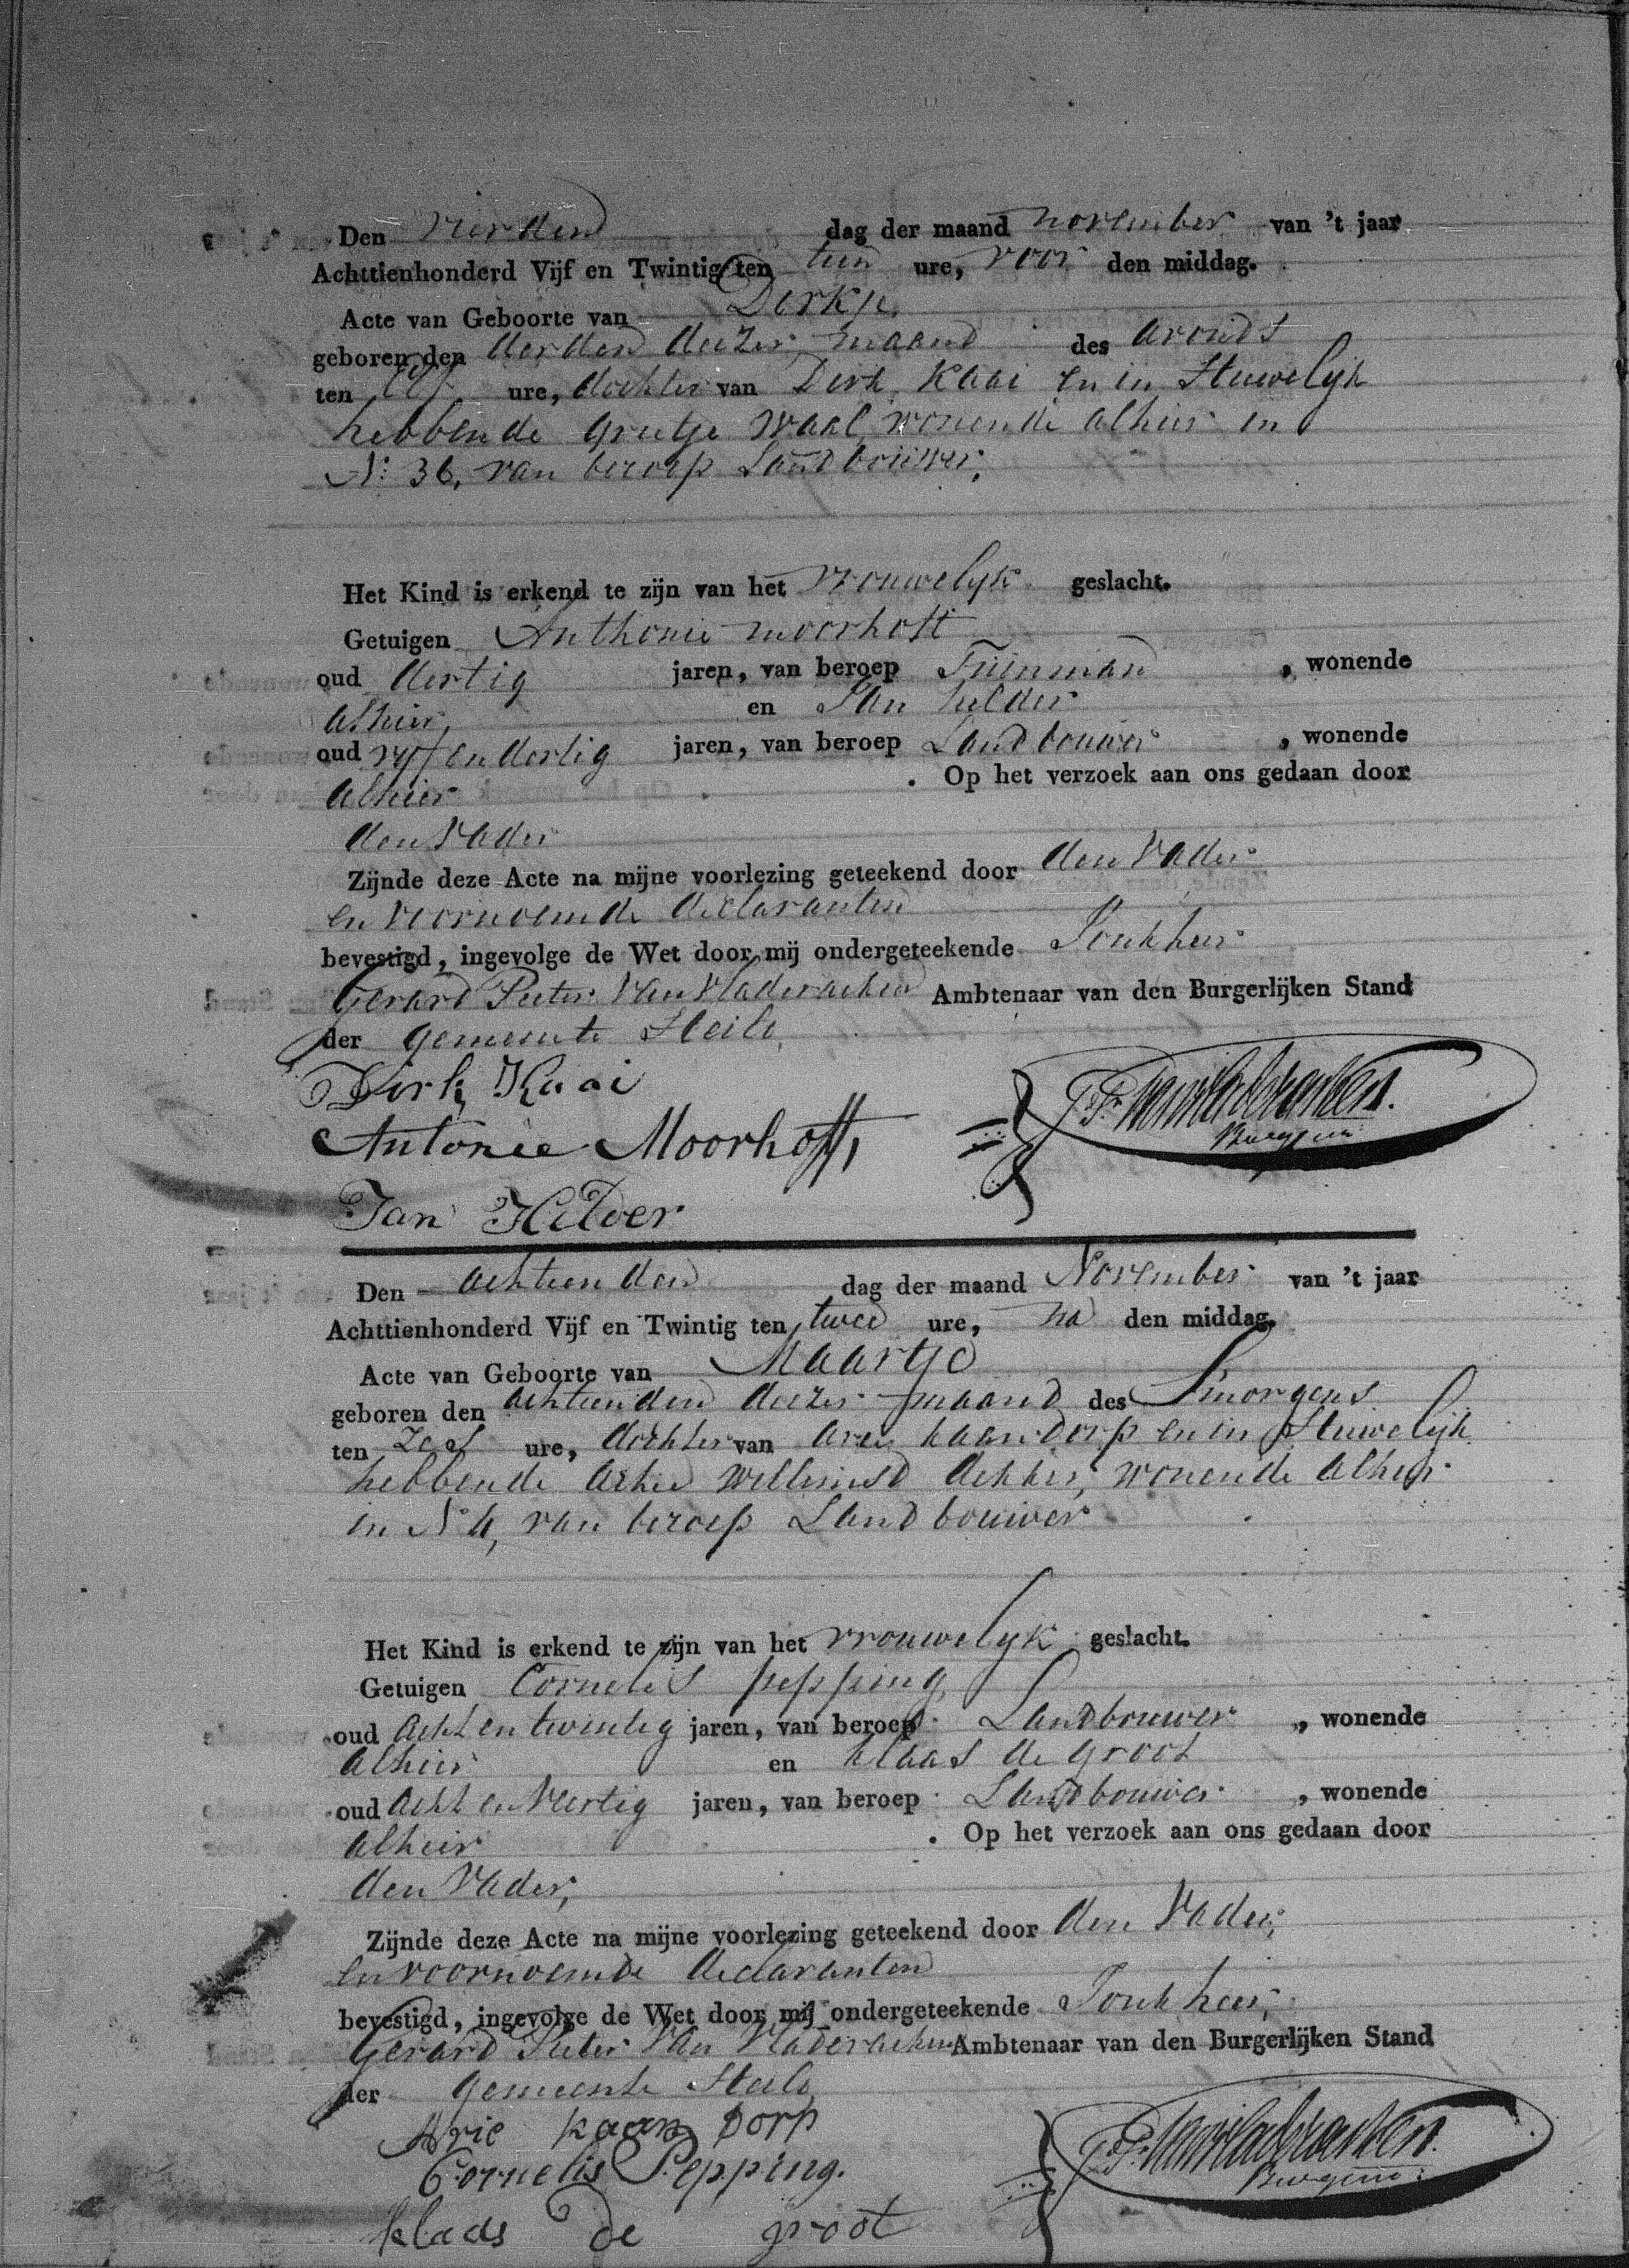 Den vierden dag der maand november van 't jaar
Achttienhonderd Vijf en Twintig ten tien ure, voor den middag.
Acte van Geboorte van Dirkje,
geboren den derden deezer maand des avonds
ten elf ure, dochter van Dirk Kaai en in Huwelijk
hebbende Grietje Waal, wonende alhier in
N: 36, van beroep Landbouwer,
Het Kind is erkend te zijn van het vrouwelyk geslacht.
Getuigen Anthonie moorhoff
oud dertig jaren, van beroep Tuinman , wonende
alhier, en Jan helder
oud vyf en dertig jaren, van beroep Landbouwer , wonende
alhier . Op het verzoek aan ons gedaan door
den Vader
Zijnde deze Acte na mijne voorlezing geteekend door den Vader
en voornoemde declaranten
bevestigd, ingevolge de Wet door mij ondergeteekende Jonkheer
Gerard Pieter Van Vladeracken Ambtenaar van den Burgerlijken Stand
der gemeente Heilo,
Dirk Kaai
Antonie Moorhoff,
G: P: van Vladeracken.
Burgem:
Jan Helder
Den achtienden dag der maand November van 't jaar
Achttienhonderd Vijf en Twintig ten twee ure, na den middag.
Acte van Geboorte van Maartje
geboren den achtienden deezer maand des Smorgens
ten zes ure, dochter van Arie kaandorp en in Huwelijk
hebbende Willemse dekker, wonende alhier
in N 4, van beroep Landbouwer
Het Kind is erkend te zijn van het vrouwelyk geslacht.
Getuigen Cornelis pepping
oud acht en twintig jaren, van beroep Landbouwer , wonende
alhier en klaas de groot
oud acht en Veertig jaren, van beroep Landbouwer , wonende
alhier . Op het verzoek aan ons gedaan door
den Vader,
Zijnde deze Acte na mijne voorlezing geteekend door den Vader,
en voornoemde declaranten
bevestigd, ingevolge de Wet door mij ondergeteekende Jonkheer,
Gerard Pieter Van Vladeracken Ambtenaar van den Burgerlijken Stand
der gemeente Heilo,
Arie kaan Dorp
Cornelis Pepping.
G: P: van Vladeracken.
Burgem:
klaas de groot